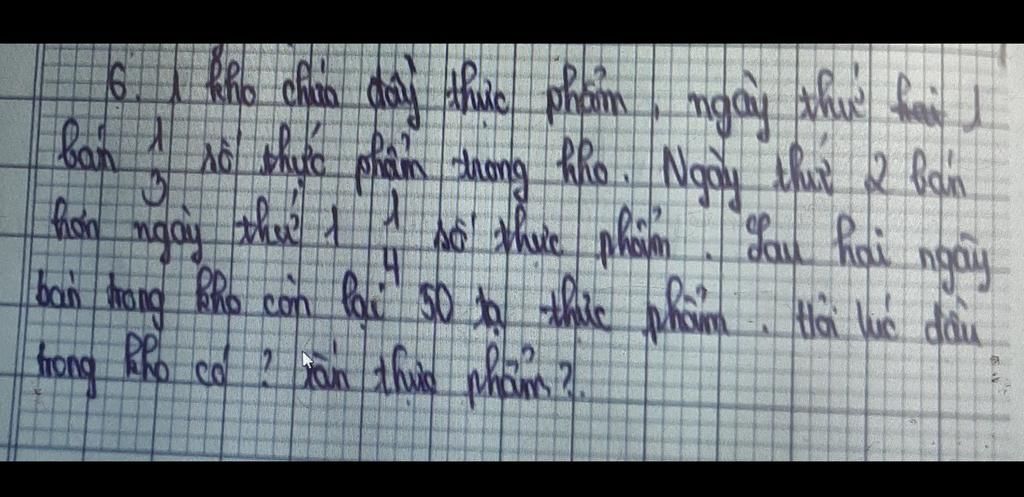 6. 1 kho chứa đầy thực phẩm, ngày thứ hai 1
bán 1/3 số thực phẩm trong kho. Ngày thứ 2 bán
hơn ngày thứ 1 1/4 số thực phẩm. Sau hai ngày
bán trong kho còn lại 50 tạ thực phẩm. Hỏi lúc đầu
trong kho có ? tấn thực phẩm?.